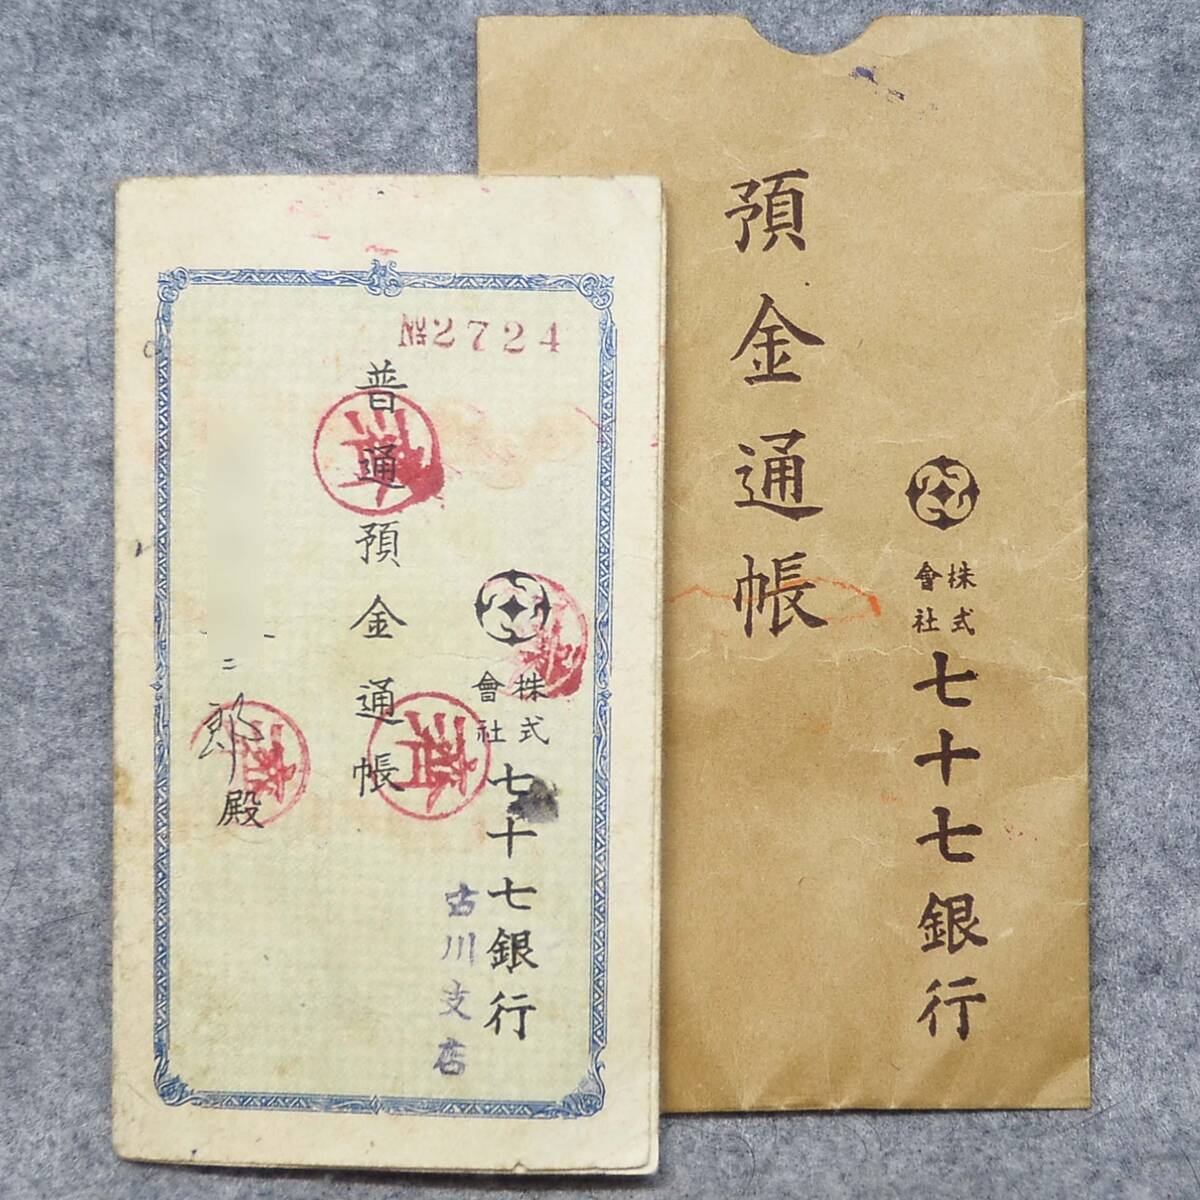 預金通帳
株式會社七十七銀行
№2724
普通預金通帳
株式會社七十七銀行
古川支店
二郎殿